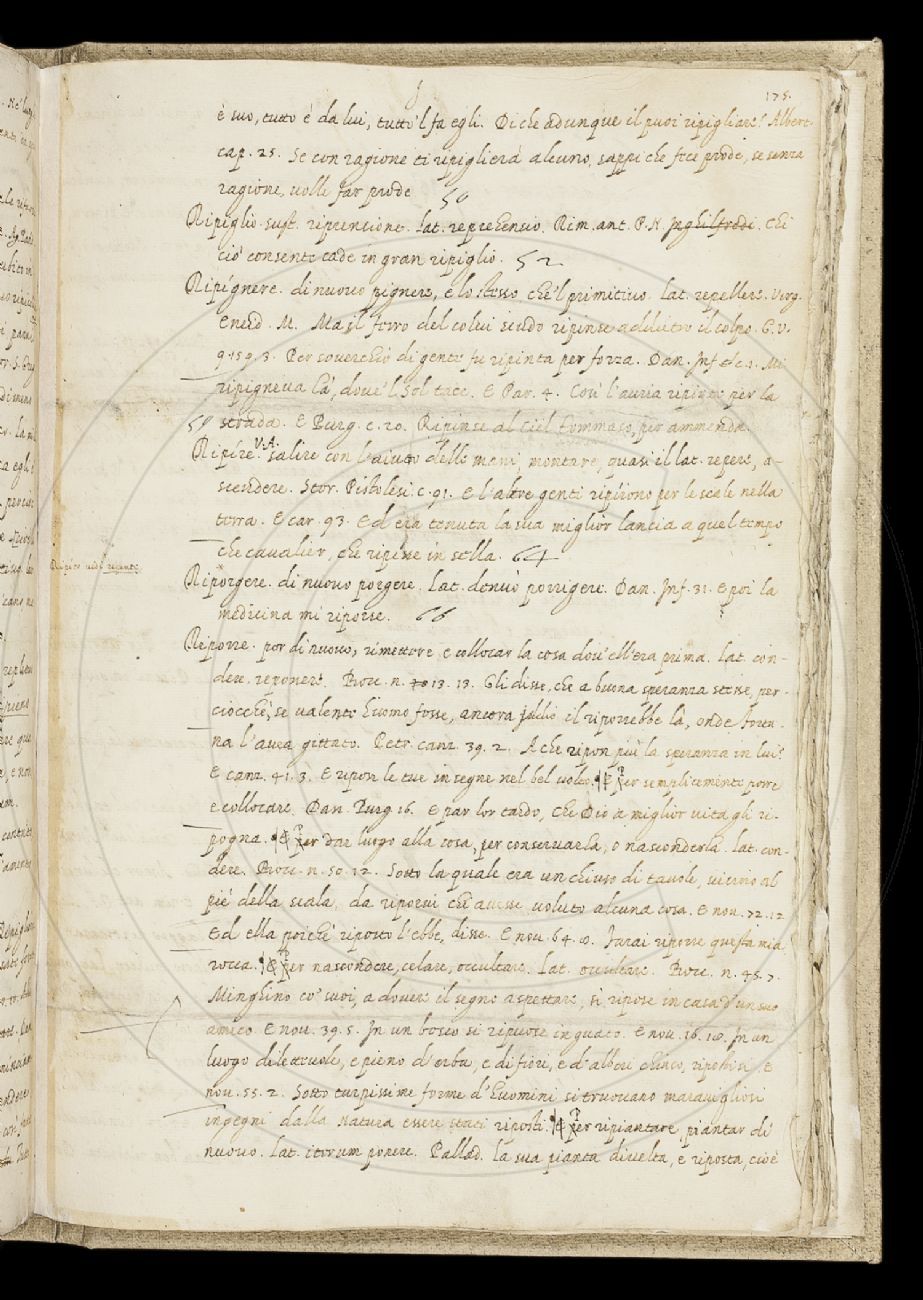 175.
è suo, tutto è da lui, tutto 'l fa egli. Di che adunque il puoi ripigliare? Albert.
cap. 25. Se con ragione ti ripiglierà alcuno, sappi che fece prode, se senza
ragione, volle far prode
50
Ripiglio. sust. riprensione. lat. reprehensio. Rim. ant. P. N. Inghilfredi. Chi
ciò consente cade in gran ripiglio. 52
Ripignere. di nuovo pignere, e lo stesso che 'l primitivo. lat. repellere. Virg.
Eneid. M. Ma il ferro del colui scudo ripinse addietro il colpo. G. V.
9. 159. 3. Per soverchio di gente fu ripinta per forza. Dan. Inf. c. 1. Mi
ripigneva là, dove 'l Sol tace. E Par. 4. Così l'auria ripinte per la
59 strada. E Purg. c. 20. Ripinse al Ciel Tommaso, per ammenda.
Ripire. V. A. salire con l'aiuto delle mani, montare, quasi il lat. repere, a-
scendere. Stor. Pistolesi c. 91. E l'altre genti ripirono per le scale nella
terra. E car. 93. Ed era tenuta la sua miglior lancia a quel tempo
che cavalier, che ripisse in sella. 64
Riporgere. di nuovo porgere. Lat. denuo porrigere. Dan. Inf. 31. E poi la
medicina mi riporse. 66
Riporre. por di nuovo, rimettere e collocar la cosa dov'ell'era prima. Lat. con-
dere, reponere. Bocc. n. 13. 13. Gli disse, che a buona speranza stesse, per-
ciocchè, se valente huomo fosse, ancora Iddio il riporrebbe là, onde fortu-
na l'avea gittato. Petr. canz. 39. 2. A che ripon più la speranza in lui?
E canz. 41. 3. E ripon le tue insegne nel bel volto. ¶ E per semplicemente porre
e collocare. Dan. Purg. 16. E par lor tardo, che Dio a miglior vita gli ri-
pogna. ¶ E per dar luogo alla cosa, per conservarla, o nasconderla. lat. con-
dere. Bocc. n. 50. 12. Sotto la quale era un chiuso di tavole, vicino al
piè della scala, da riporvi chi avesse voluto alcuna cosa. E nov. 72. 12
Ed ella poichè riposto l'ebbe, disse. E nov. 64. 8. Intrai riporre questa mia
rocca. ¶ E per nascondere, celare, occultare. Lat. occultare. Bocc. n. 45. 7.
Minghino co' suoi, a dovere il segno aspettare, si ripose in casa d'un suo
amico. E nov. 39. 5. In un bosco si ripuose in guato. E nov. 16. 10. In un
luogo dilettevole, e pieno d'erba, e di fiori, e d'alberi chiuso, ripostisi. E
nov. 55. 2. Sotto turpissime forme d'huomini si truovano maravigliosi
ingegni dalla natura essere stati riposti. ¶ E per ripiantare, piantar di
nuovo. Lat. iterum ponere. Pallad. La sua pianta divelta, e riposta, cioè